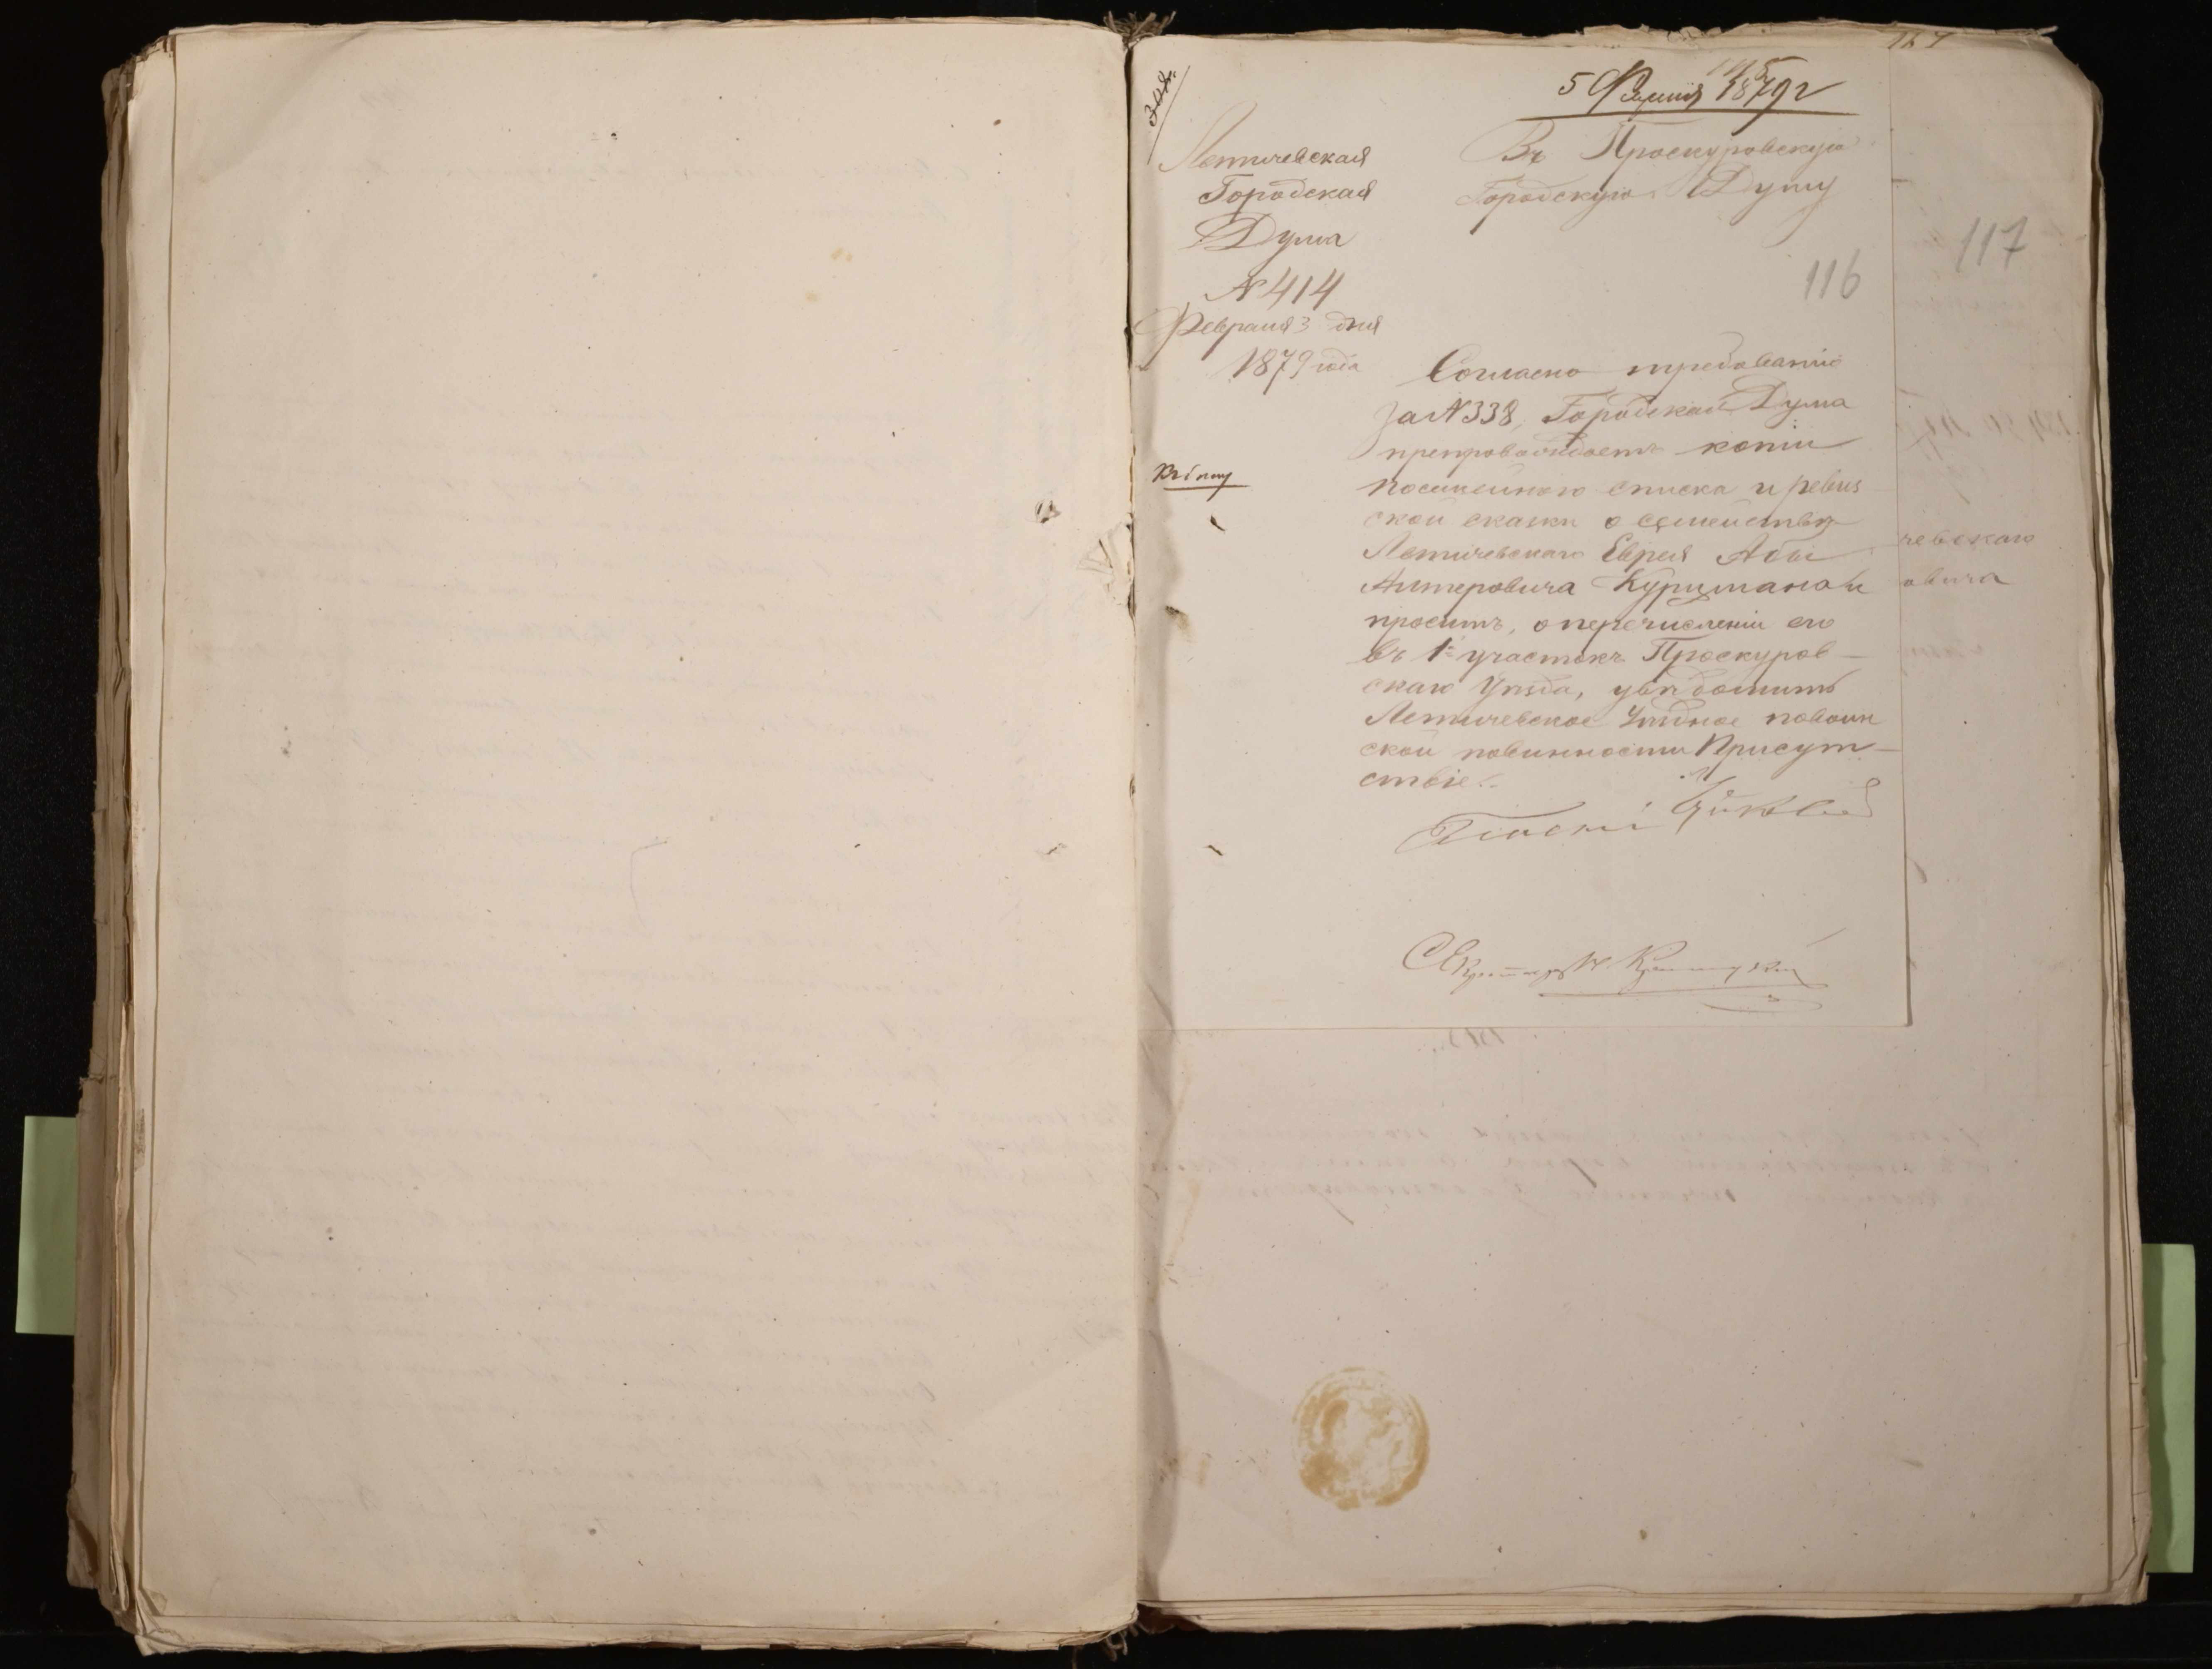 5 Февраля 1879 г
Летичевская
Городская
Дума
№ 414
Февраля 3 дня
1879 года
Въ Проскуровскую
Городскую Думу
117
116
Согласно требованію
за № 338, Городская Дума
препровождаетъ копіи
посемейнаго списка и ревиз
ской сказки о семействѣ
Летичевскаго Еврея Абы
Алтеровича Куримана и
проситъ, о перечисленіи его
въ 1й участокъ Проскуров-
скаго Уѣзда, увѣдомить
Летичевское Уѣздное по воин
ской повинности Присут-
ствіе.
Къ дѣлу
чевскаго
овича
Секретарь